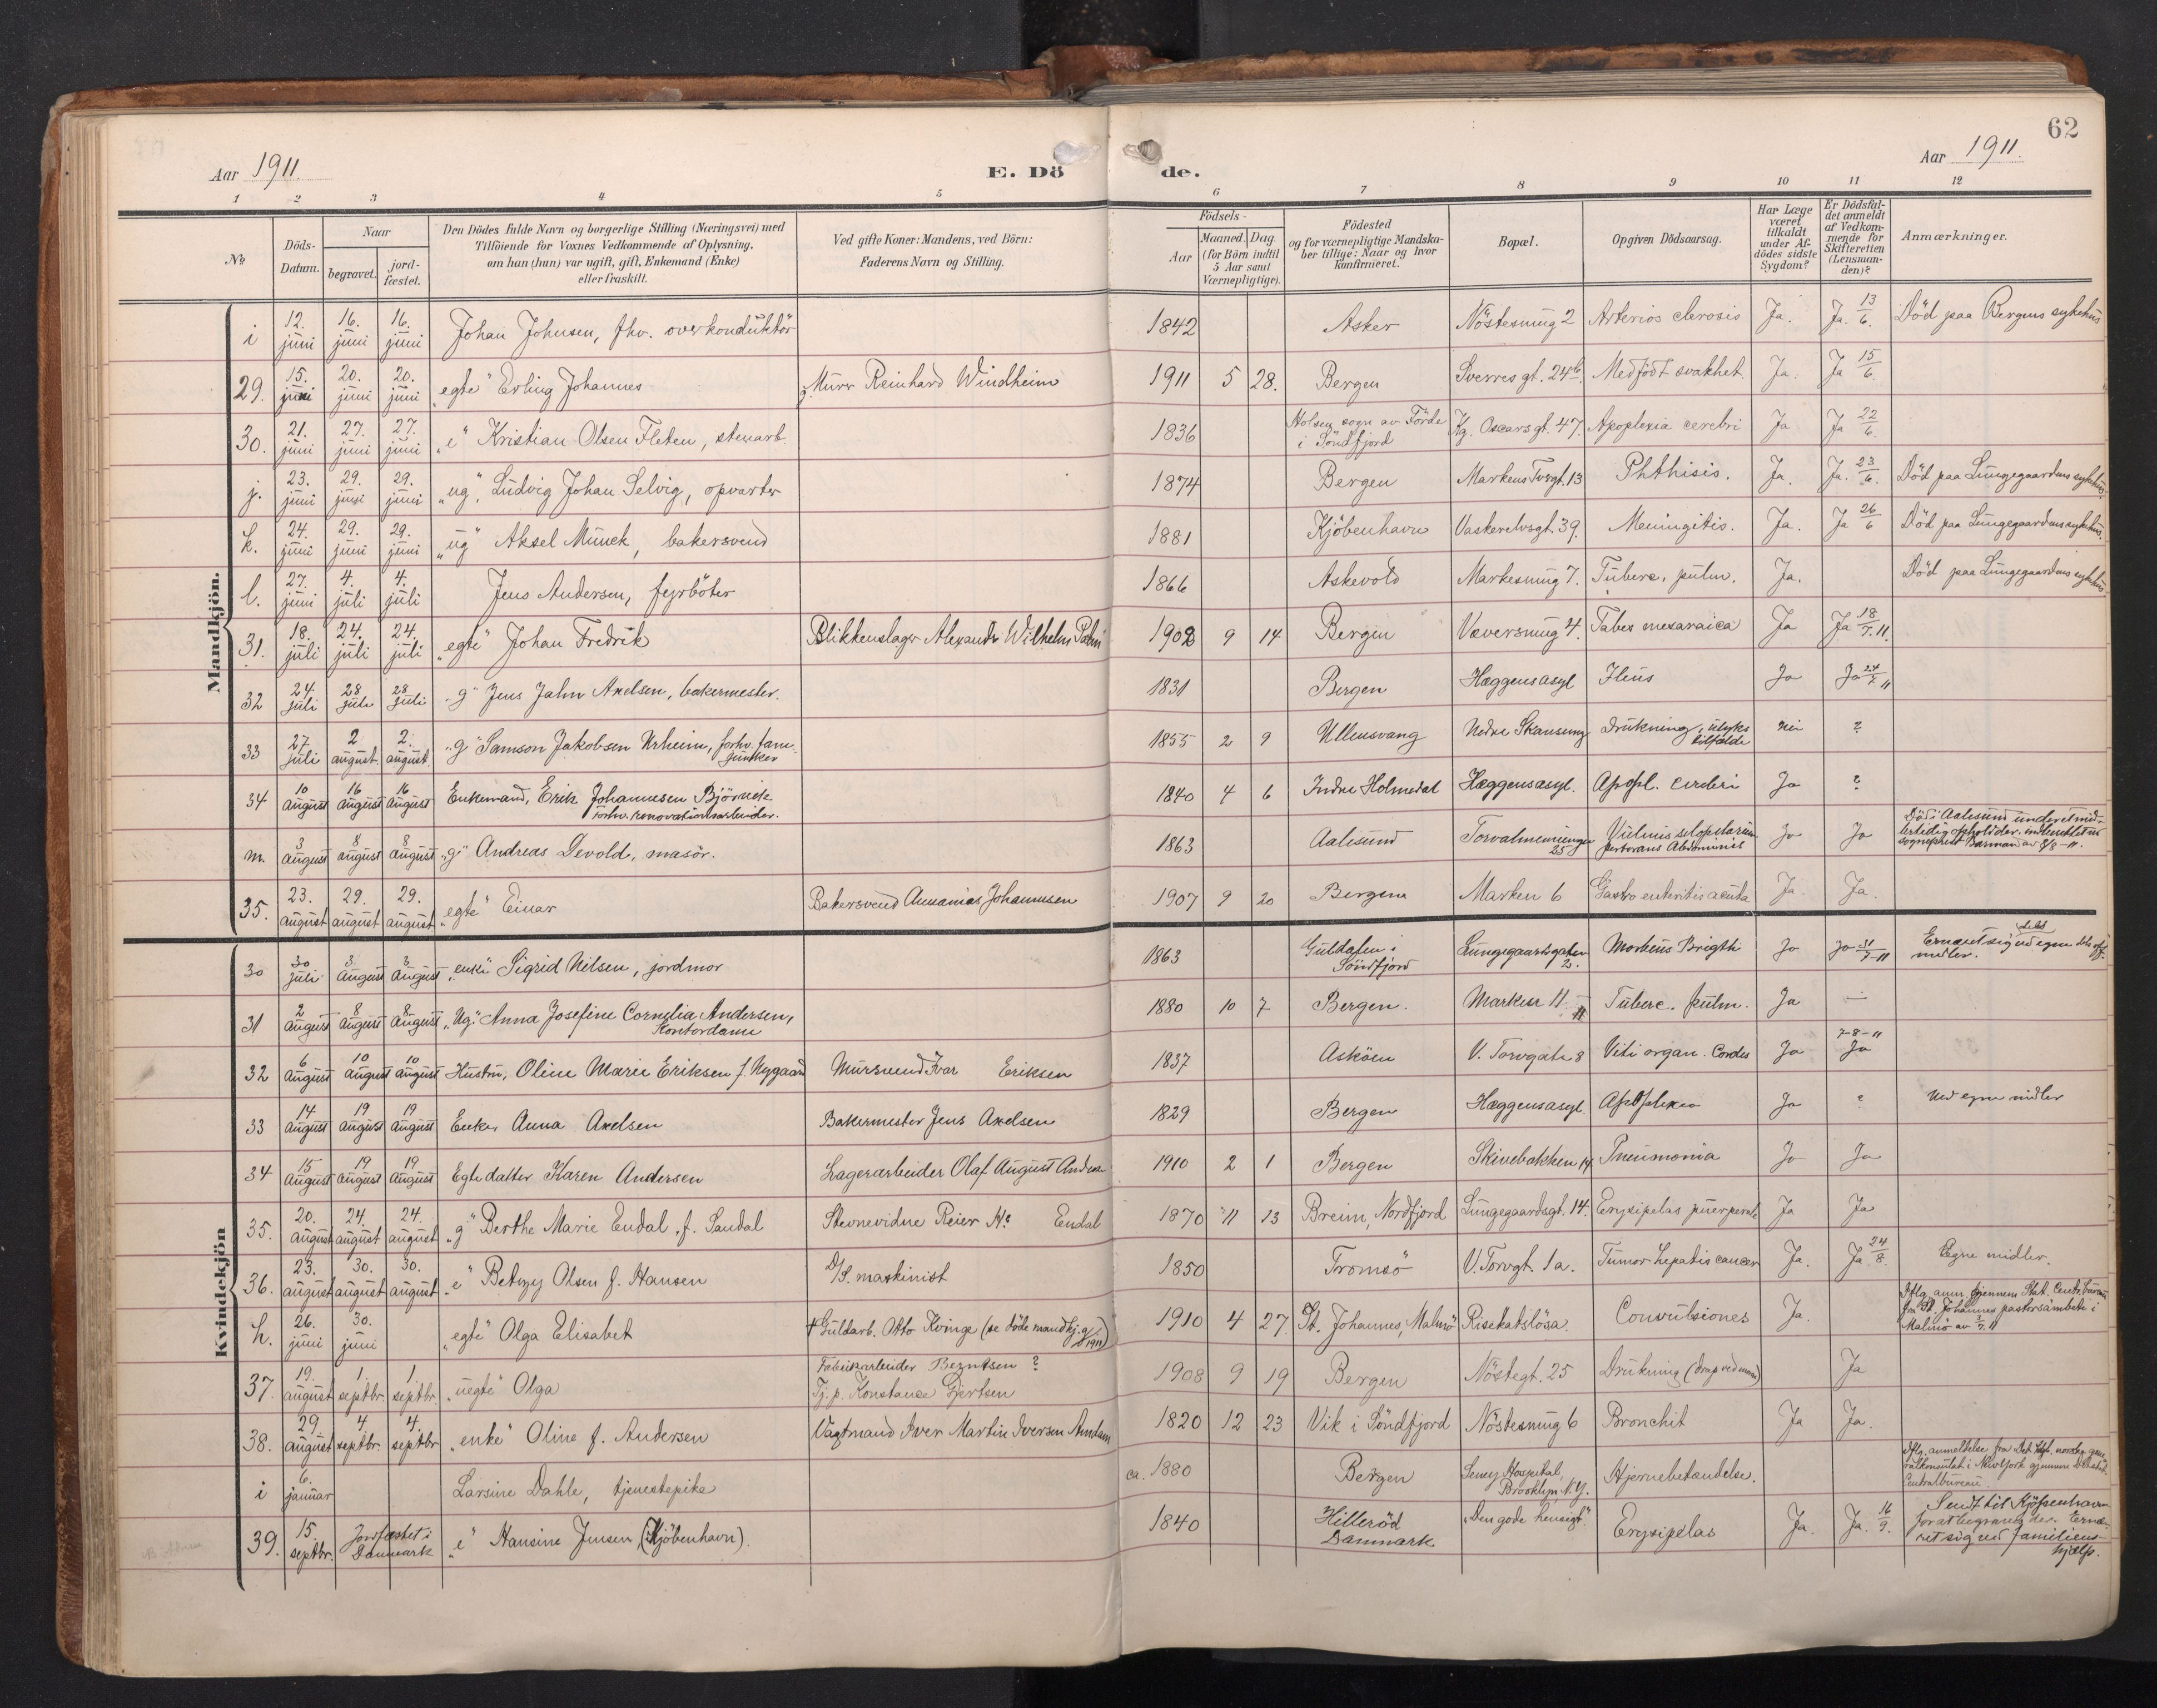 62
Aar 1911.
E. Dö de.
Aar 1911.
1 2 3 4 5 6 7 8 9 10 11 12
No
Döds-Datum.
Naar
begravet.
jord-fæstet.
Den Dödes fulde Navn og borgerlige Stilling (Næringsvei) med
Tilföiende for Voxnes Vedkommende af Oplysning,
om han (hun) var ugift, gift, Enkemand (Enke)
eller fraskilt.
Ved gifte Koner: Mandens, ved Börn:
Faderens Navn og Stilling.
Födsels-
Aar
Maaned. Dag
(for Börn indtil
5 Aar samt
Værnepligtige).
Födested
og for værnepligtige Mandska-
ber tillige: Naar og hvor
konfirmeret.
Bopæl.
Opgiven Dödsaarsag.
Har Læge
været
tilkaldt
under Af-
dödes sidste
Sygdom?
Er Dödsfal-
det anmeldt
af Vedkom-
mende for
Skifteretten
(Lensman-
den)?
Anmærkninger.
Mandkjön.
i 12. juni 16. juni 16. juni Johan Johnsen, fhv. overkonduktör 1842 Asker Nöstesmug 2 Arterios clerosis Ja. Ja. 13/6. Död paa Bergens sykehus
29. 15. juni 20. juni 20. juni "egte" Erling Johannes Murer Reinhard Windheim 1911 5 28. Bergen Sverresgt. 24b. Medfödt svakhet. Ja. Ja 15/6.
30. 21. juni 27. juni 27. juni "e" Kristian Olsen Fleten, stenarb. 1836 Holsen sogn av Förde i Söndfjord Kg. Oscarsgt. 47. Apoplexia cerebri Ja Ja 22/6.
j. 23. juni 29. juni 29. juni "ug". Ludvig Johan Selvig, opvarter 1874 Bergen Markens Tvergt. 13 Phthisis. Ja. Ja. 23/6. Död paa Lungegaardens sykehus.
k. 24. juni 29. juni 29. juni "ug" Aksel Munck, bakersvend 1881 Kjöbenhavn Vaskerelvsgt. 39. Meningitis. Ja. Ja 26/6 Död paa Lungegaardens sykehus.
l. 27. juni 4. juli 4. juli Jens Andersen, fyrböter 1866 Askevold Markesmug 7. Tuberc. pulm. Ja. Död paa Lungegaardens sykehus.
31. 18. juli 24. juli 24. juli "egte" Johan Fredrik Blikkenslager Alexander Wilhelm Palm 1908 9 14 Bergen Væversmug 4. Tabes mesaraica Ja Ja 18/7.11.
32 24. juli 28 juli 28 juli "g" Jens Jahn Axelsen, bakermester. 1831 Bergen Hæggensasyl Ileus Ja Ja 24/7 11
33 27. juli 2 august. 2. august "g" Samson Jakobsen Urheim, forhv. 1855 2 9 Ullensvang Nedre Skansemg Drukning, ulykstilfælde nei ?
34 10 august 16 august 16 august Enkemand, Erik Johannesen Björnvik forhv. renovationsarbeider. 1840 4 6 Indre Holmedal Hæggensasyl. Apopl. cerebri Ja ?
m. 3 august 8 august 8 august "g" Andreas Devold, masör. 1863 Aalesund Torvalmenningen 25 Vulnus sclopetarium perforans Abdominis Ja Ja Död i Aalesund under et mid-
lertidig ophold der. meddelelse
sogneprest av 8/8 - 11.
35. 23. august 29. august 29. august "egte" Einar Bakersvend Annanias Johannesen 1907 9 20 Bergen Marken 6 Gastro enteritis acuta Ja. Ja.
Kvindekjön
30 30 juli 3 august 3 august "enke" Sigrid Nilsen, jordmor 1863 Guldalen i Söndfjord Lungegaardsgaten 2. Morbus Brigthi Ja Ja 31/7-11 Ernæret sig ved egne midler.
31 2 august 8 august 8 august "Ug." Anna Josefine Cornelia Andersen, Kontordame 1880 10 7 Bergen. Marken 11 Tuberc. pulm. Ja —
32 6 august 10 august 10 august Hustru, Oline Marie Eriksen f. Nygaard Mursvend Ivar Eriksen 1837 Asköen V. Torvgate 8 Viti organ. Cordis Ja 7-8-11 Ja
33 14 august 19 august 19 august Enke, Anna Axelsen Bakermester Jens Axelsen 1829 Bergen Hæggensasyl. Apoplexia Ja ? Ved egne midler
34 15 august 19 august 19 august Egte datter Karen Andersen Lagerarbeider Olaf August Andersen 1910 2 1 Bergen Skivebakken 14. Pneumonia Ja Ja
35. 20. august 24. august 24. august "g" Berthe Marie Endal, f. Sandal Stevnevidne Reier Hs. Endal 1870 11 13 Breim, Nordfjord Lungegaardsgt. 14. Erysipelas puerperale Ja Ja
36. 23. august 30. august 30. august "e" Betzy Olsen f. Hansen D/S. maskinist 1850 Tromsö V. Torvgt. 1a. Tumor hepatis cancer Ja. Ja 24/8. Egne midler.
h. 26. juni 30. juni "egte" Olga Elisabet † Guldarb. Otto Kvinge (se döde mandkj. g 1911) 1910 4 27. St. Johannes, Malmö Risekatslösa. Convulsiones Ja. Iflg. anm. gjennem Stat. Centr. bureau
fra St. Johannes pastorsämbete i
Malmö av 3/7. 11
37. 19. august 1. septbr. 1. septbr. "uegte" Olga Fabrikarbeider Berntsen ?
Tj. p. Konstance Gjertsen 1908 9 19 Bergen Nöstegt. 25 Drukning (drap ved moren) Ja
38. 29 august 4 septbr. 4. septbr "enke" Oline f. Andersen Vagtmand Iver Martin Iversen Amdam 1820 12 23 Vik i Söndfjord Nöstesmug 6 Bronchit Ja Ja.
i 6. januar Larsine Dahle, tjenestepike ca. 1880 Bergen Seney Hospital, Brooklyn, N.Y. Hjernebetændelse. Iflg. anmeldelse fra Det kgl. norske gene-
ralkonsulat i New York gjennem Det stat.
Centralbureau.
39. 15. septbr. Jordfæstet i Danmark "e" Hansine Jensen, (Kjöbenhavn). 1840 Hilleröd Danmark "Den gode hensigt". Erysipelas Ja. Ja. 16/9. Sendt til Kjöpenhavn
for at begraves der. Ernæ-
ret sig ved familiens
hjælp.